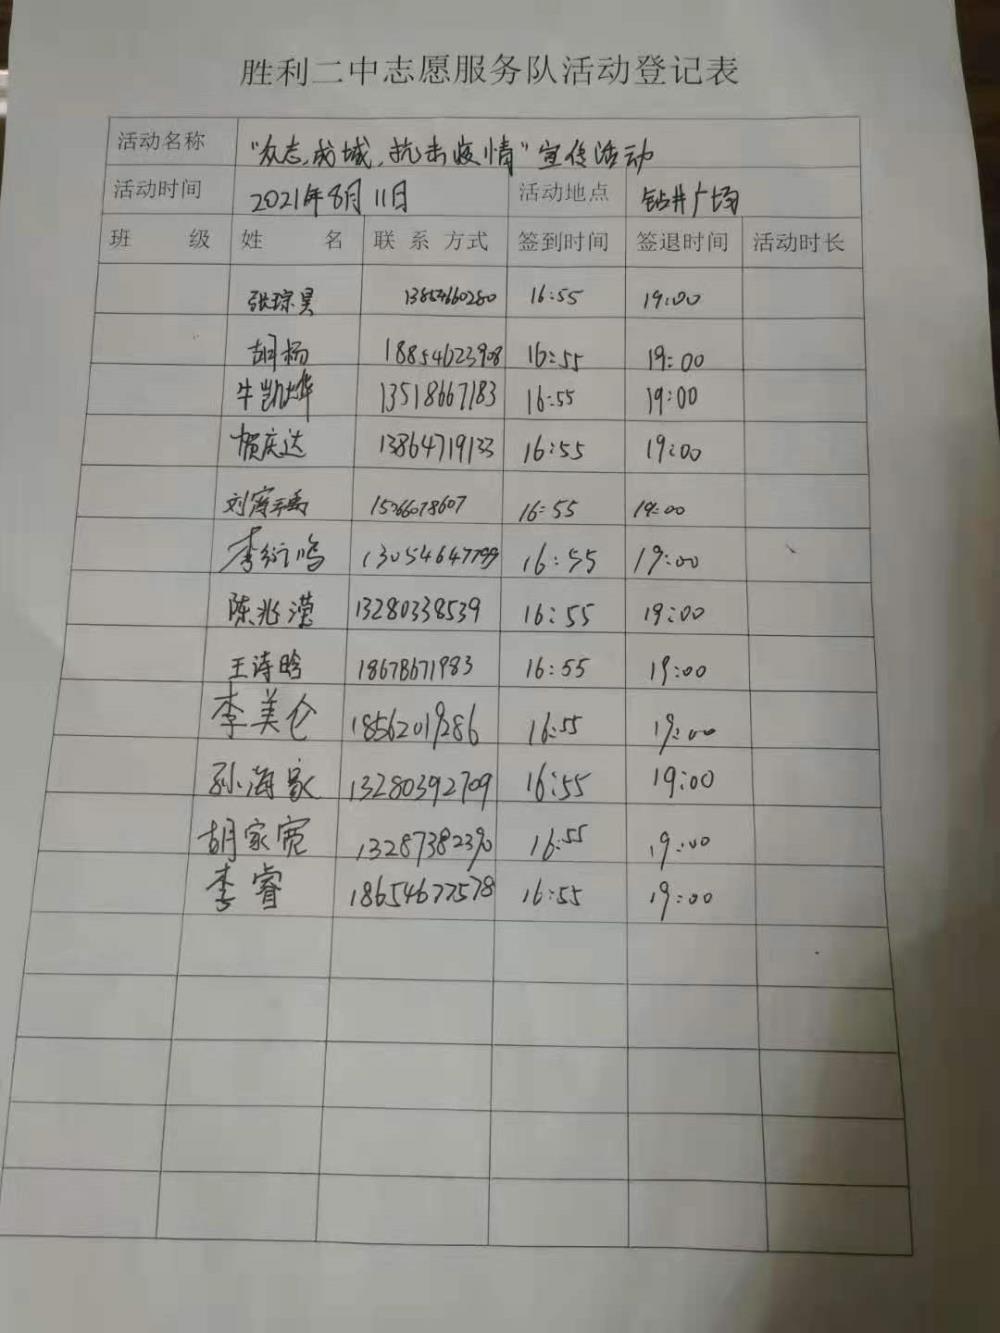 胜利二中志愿服务队活动登记表
活动名称 “众志成城,抗击疫情”宣传活动
活动时间 2021年8月11日 活动地点 钻井广场
班 级 姓 名 联系方式 签到时间 签退时间 活动时长
张琮昊 13854660280 16:55 19:00
胡杨 18854623908 16:55 19:00
牛凯烨 13518667183 16:55 19:00
贺庆达 13864719133 16:55 19:00
刘 15266078607 16:55 19:00
李衍鸣 13054647799 16:55 19:00
陈兆滢 13280338539 16:55 19:00
王诗晗 18678671983 16:55 19:00
李美仑 18562019286 16:55 19:00
孙海家 13280392709 16:55 19:00
胡家宽 13287382390 16:55 19:00
李睿 18654677578 16:55 19:00